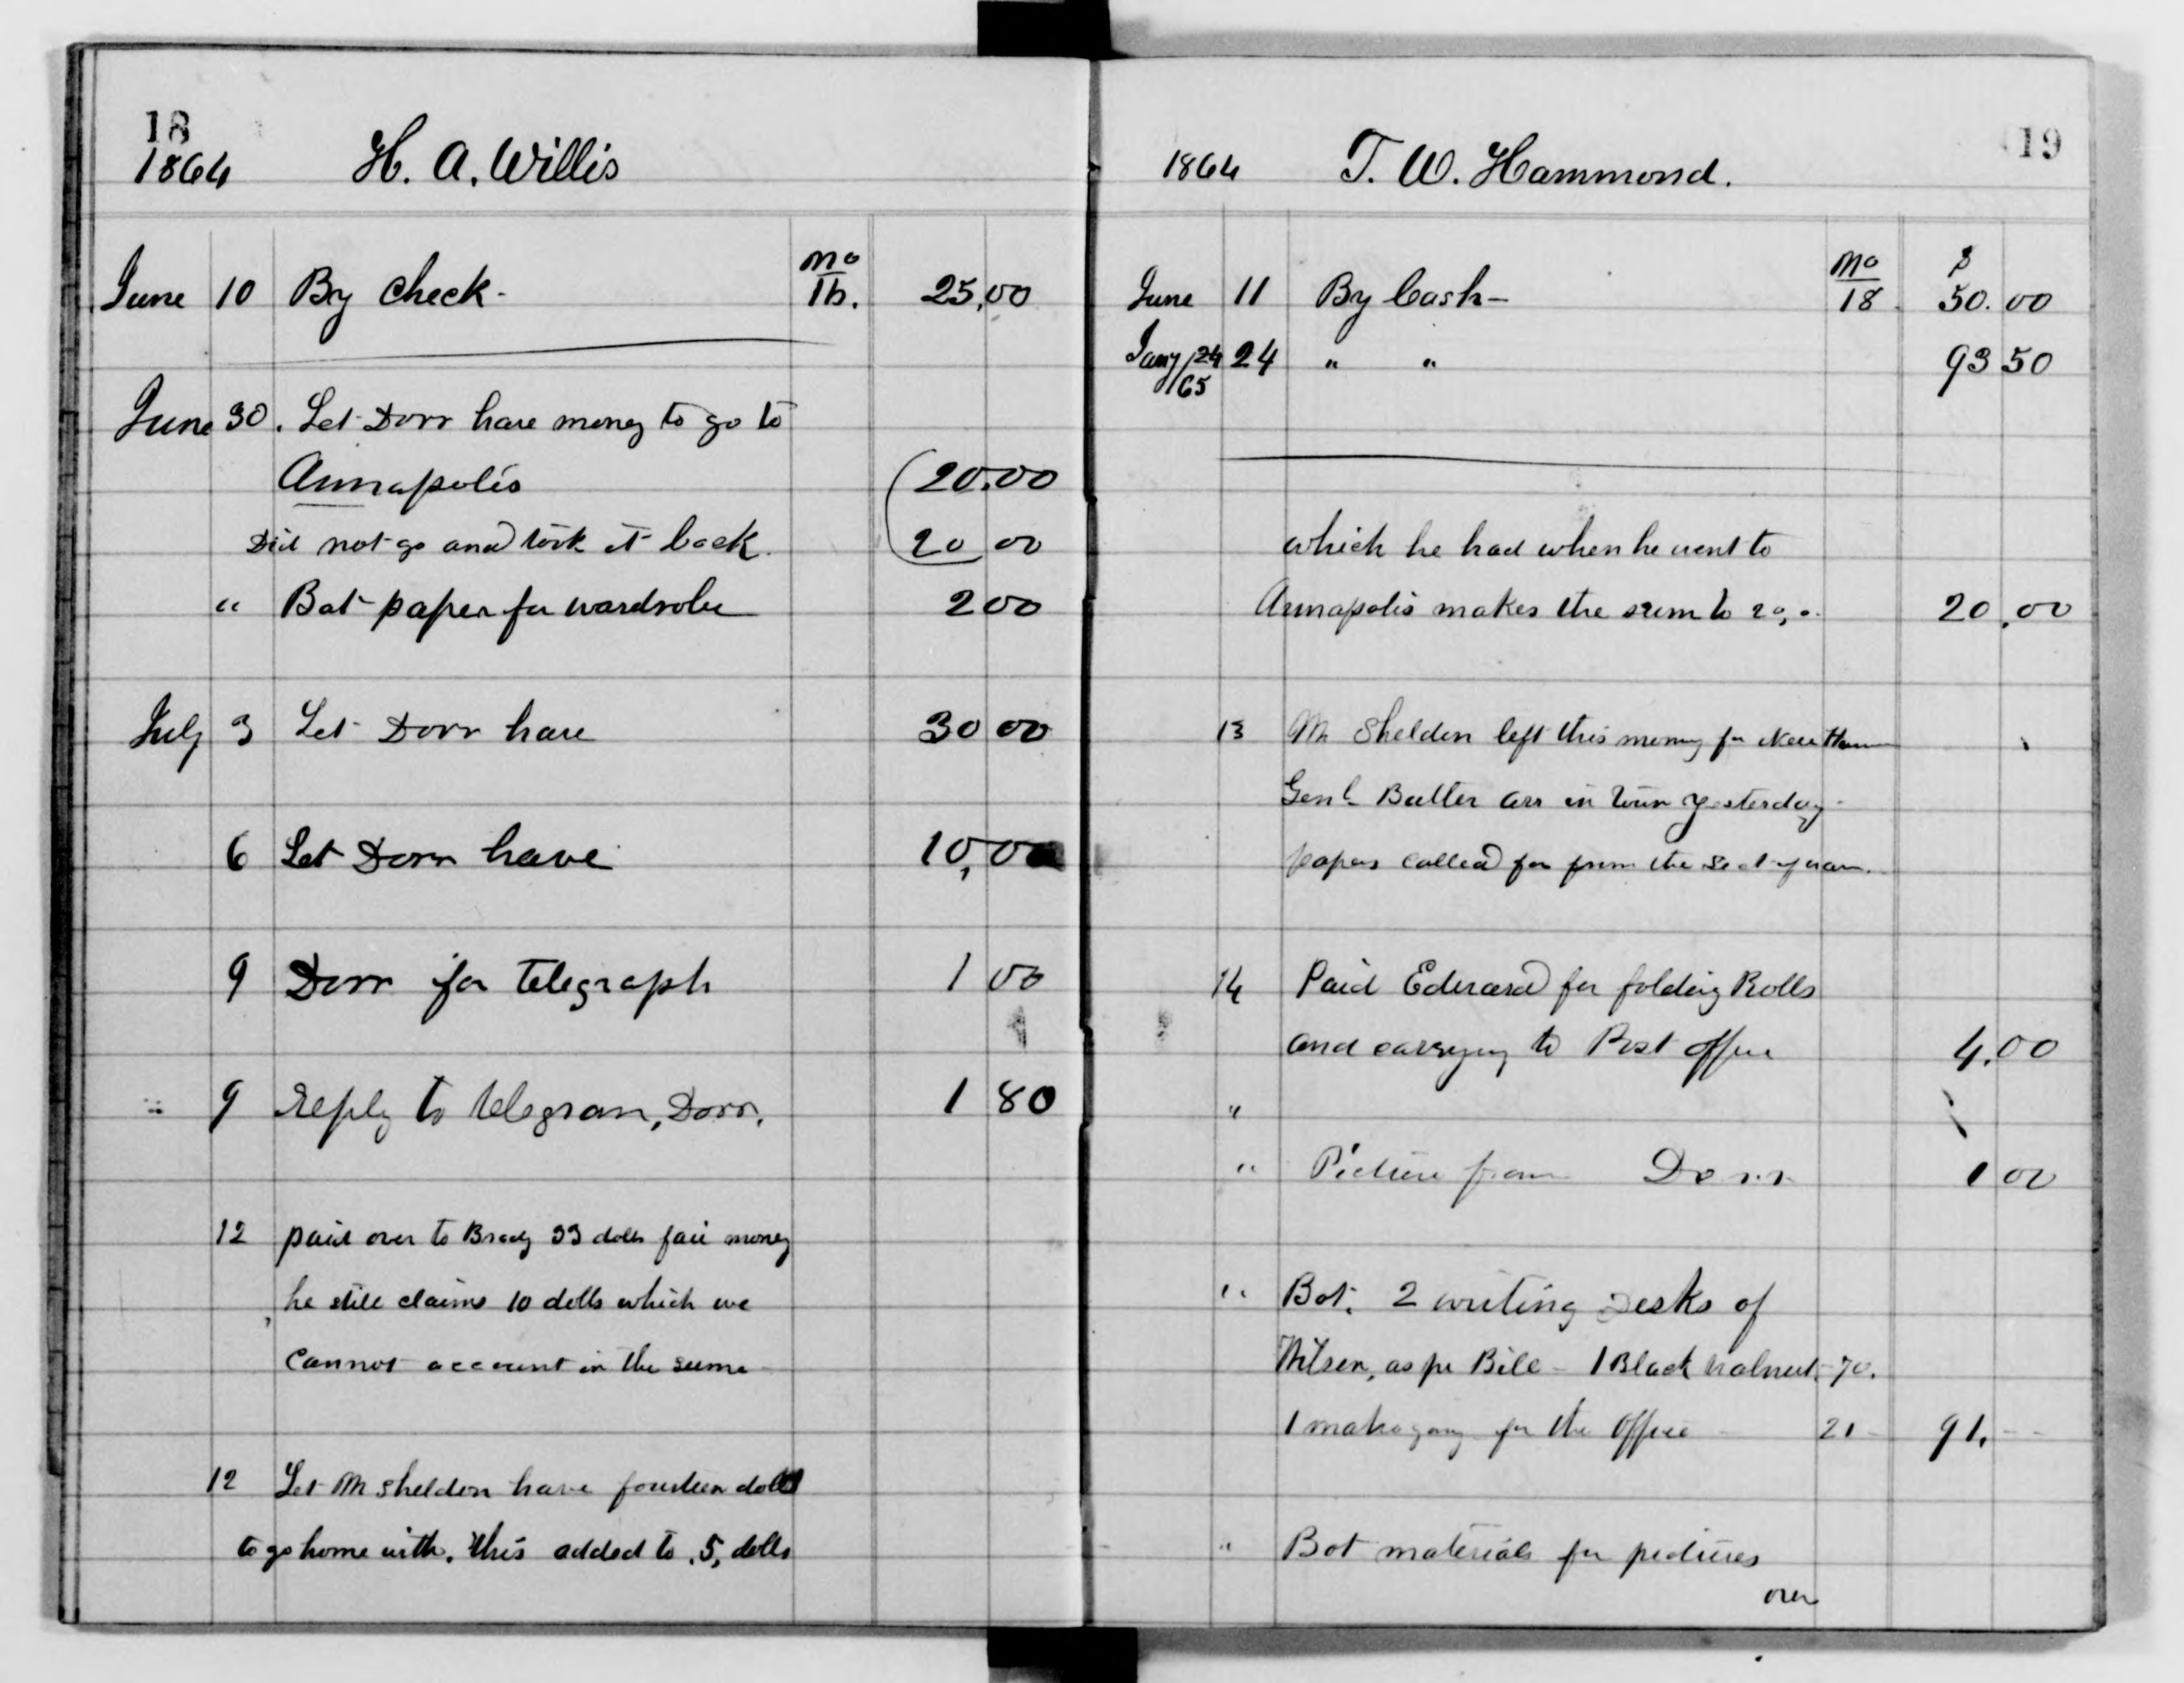 18
1864 H. A. Willis
June 10 By Check - mo 16. 25,00
June 30. Let Dorr have money to go to
Annapolis (20.00
Did not go and took it back. 20 00
" Bot paper for wardrobe 2 00
July 3 Let Dorr have 30 00
6 Let Dorr have 10,00
9 Dorr for Telegraph 1 00
9 Reply to telegram, Dorr. 1 80
12 paid over to Brady 33 dolls fair money
he still claims 10 dolls which we
cannot account in the sume
12 Let Mr Sheldon have fourteen dolls
to go home with. this added to .5, dolls
19
1864 T. W. Hammond.
June 11 By Cash - Mo 18 $ 50.00
Jany/24 65 24 " " 93 50
which he had when he went to
Annapolis makes the sum to 20,0. 20.00
13 Mr Sheldon left this morning for New
Genl Butler arr in town yesterday -
papers called for from the Sect of war.
14 Paid Edward for folding Rolls
and carrying to Post office 4.00
"
" Picture from Dorr 1 00
" Bot. 2 writing Desks of
Wilson, as pr Bill - 1 Black walnut - 70.
1 mahogany for the Office - 21 - 91. - -
" Bot materials for pictures
over